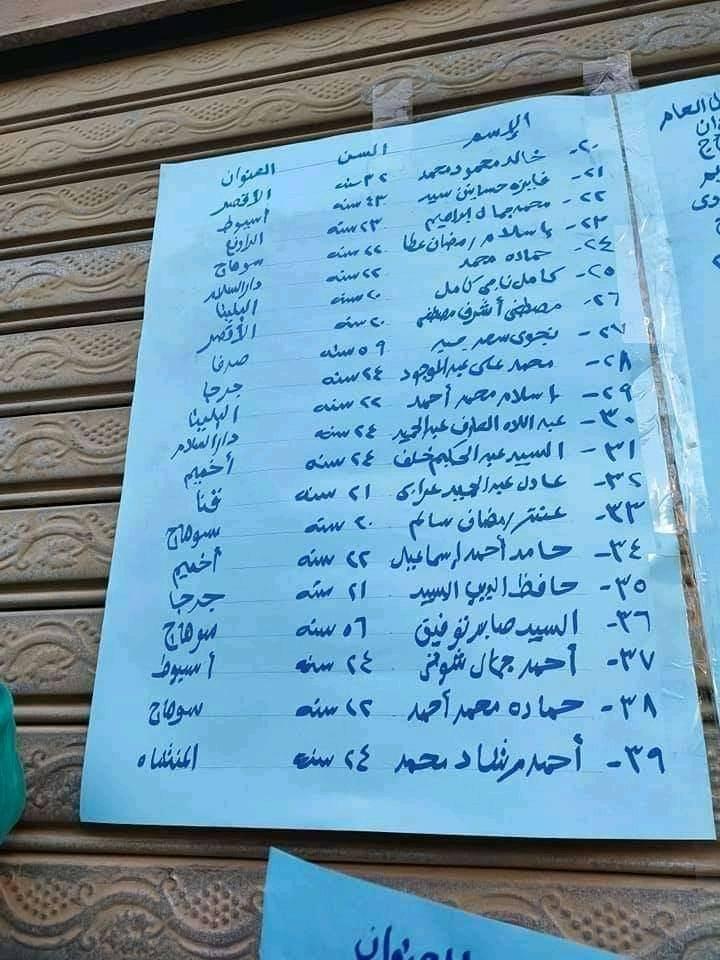 الإسم السن العنوان
٢٠- خالد محمود محمد ٣٢ سنه الأقصر
٢١- فايزه حسانين سيد ٤٣ سنه أسيوط
٢٢- محمد جمال ابراهيم ٢٣ سنه
٢٣- إسلام رمضان عطا ٢٢ سنه سوهاج
٢٤- حماده محمد ٢٢ سنه دار السلام
٢٥- كامل ناجى كامل ٢٠ سنه البلينا
٢٦- مصطفى أشرف مصطفى ٢٠ سنه الأقصر
٢٧- نجوى سعد ٥٩ سنه صدفا
٢٨- محمد على عبد الموجود ٢٤ سنه جرجا
٢٩- إسلام محمد أحمد ٢٢ سنه البلينا
٣٠- عبد اللاه العارف عبد الحميد ٢٤ سنه دار السلام
٣١- السيد عبد الحليم خلف ٢٤ سنه أخميم
٣٢- عادل عبد الحميد عرابى ٢١ سنه قنا
٣٣- عنتر رمضان سالم ٢٠ سنه سوهاج
٣٤- حامد أحمد إسماعيل ٢٢ سنه أخميم
٣٥- حافظ الديب السيد ٢١ سنه جرجا
٣٦- السيد صابر توفيق ٥٦ سنه سوهاج
٣٧- أحمد جمال شوقى ٢٤ سنه أسيوط
٣٨- حماده محمد أحمد ٢٢ سنه سوهاج
٣٩- أحمد رشاد محمد ٢٤ سنه المنشاه
العنوان